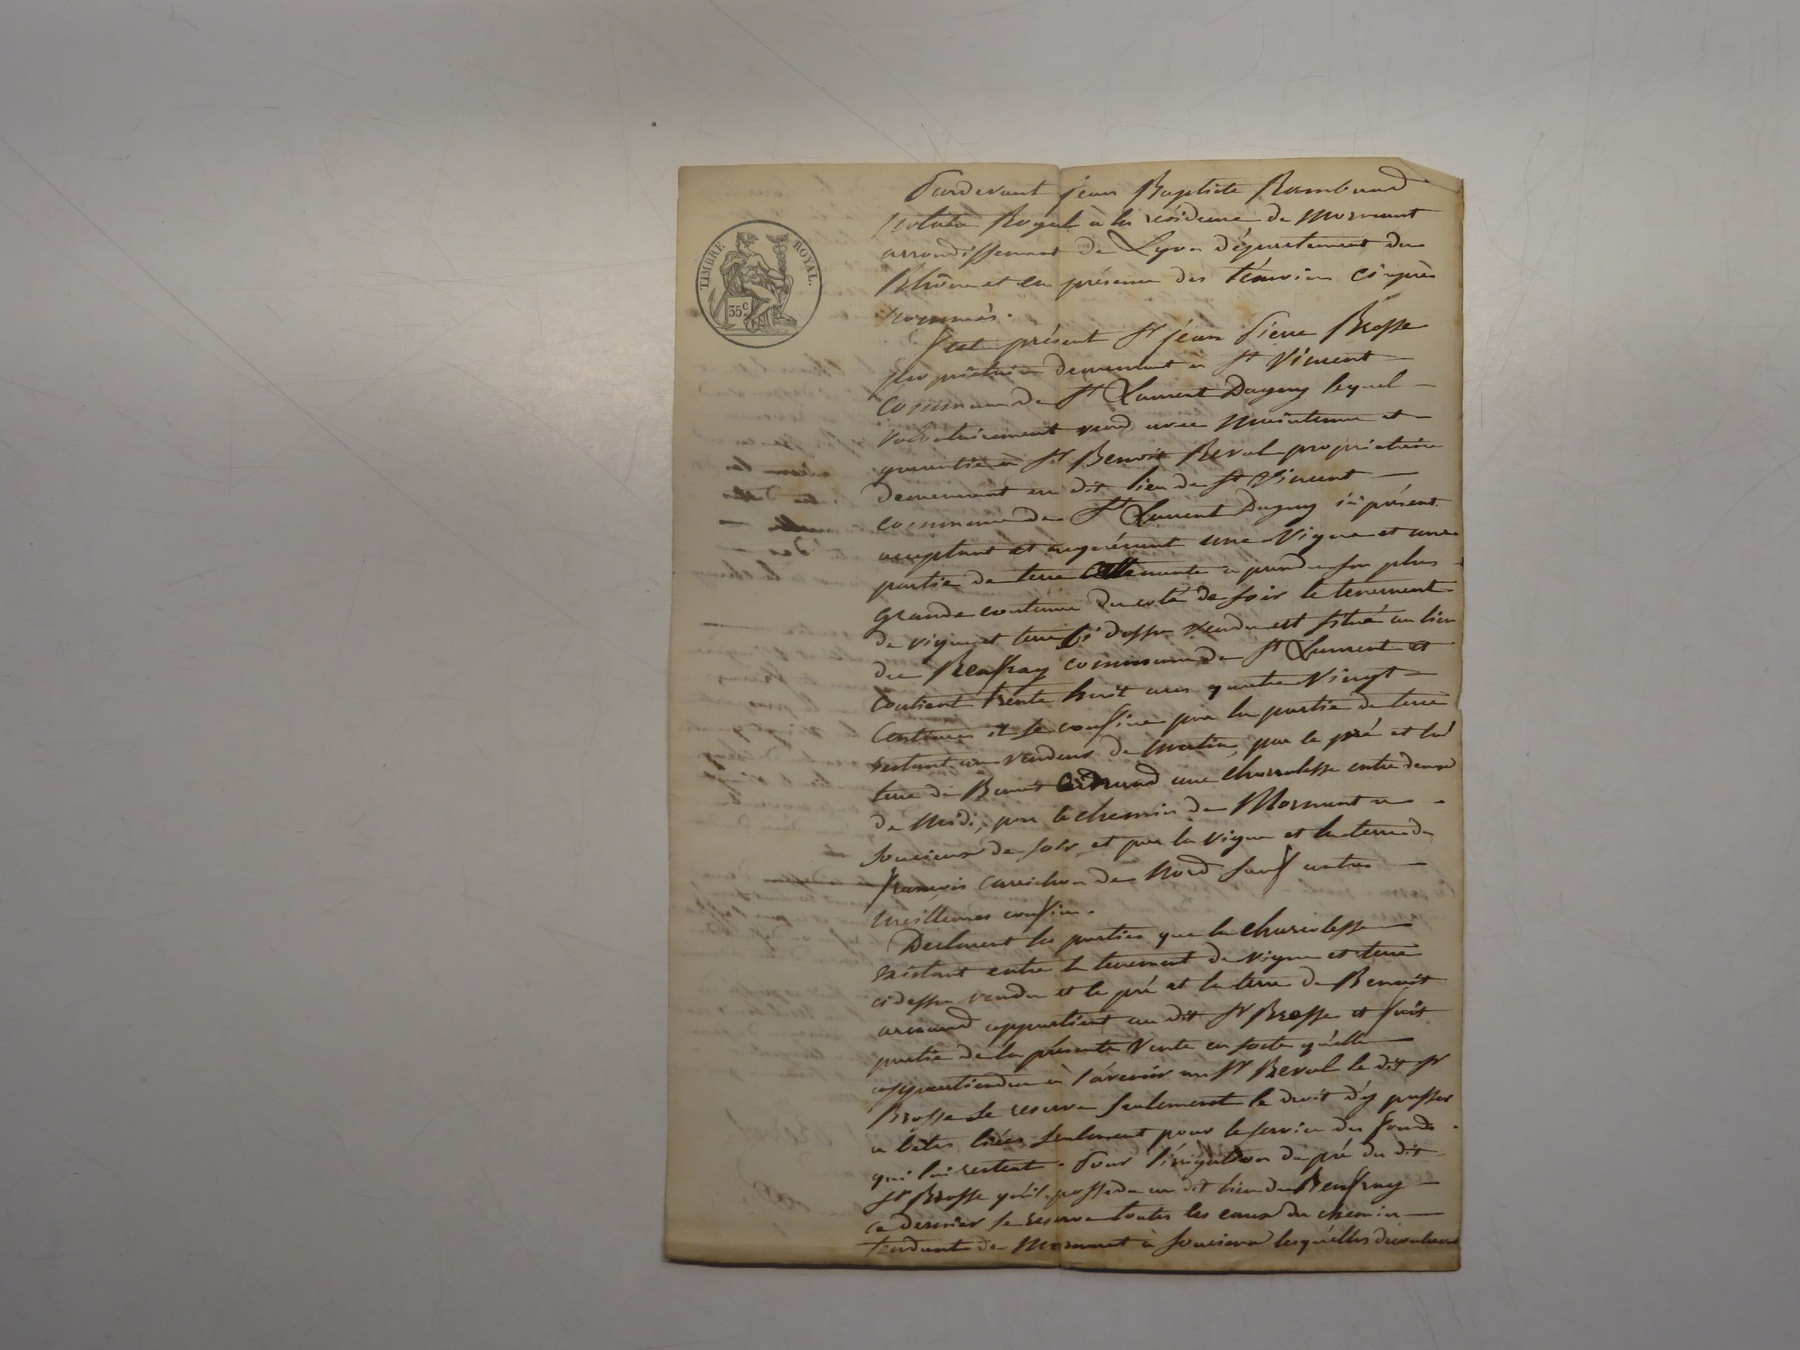 TIMBRE ROYAL.
35c.
Pardevant jean Baptiste Rambaud
Notaire Royal à la résidence de Mornant
arrondissement de Lyon département du
Rhône et en présence des témoins ci après
nommés.
Fut présent Sr jean Pierre Brosse
propriétaire demeurant a St Vincent
commune de St Laurent Dagny lequel
volontairement vend avec maintenue et
garantie à Sr Benoit Reval propriétaire
demeurant au dit lieu de St Vincent
commune de St Laurent Dagny ici présent
acceptant et acquérant une Vigne et une
partie de terre attenante a prendre sur plus
grande contenue du coté de soir le tenement
de vigne et terre ci dessus vendu est situé au lieu
du Renfray commune de St Laurent et
contient trente huit ares quatre Vingt
Centiares et se confine par la partie de terre
restant au vendeur de matin, par le pré et la
terre de Benoit une charrolesse entre deux
de Midi, par le chemin de Mornant a
Soucieux de soir, et par la vigne et la terre de
françois de Nord sauf autres
meilleures confins.
Declarent les parties que la charolesse
existant entre le tenement de vigne et terre
ci dessus vendu et le pré et la terre de Benoit
appartient au dit Sr Brosse et fait
partie de la présente Vente en sorte qu'elle
appartiendra à l'avenir au Sr Reval le dit Sr
Brosse se reserve seulement le droit d'y passer
a bêtes liées seulement pour le service des fonds
qui lui restent. Pour l'irrigation du pré du dit
Sr Brosse qu'il possede au dit lieu du Renfray
ce dernier se reserve toutes les eaux du chemin
tendant de Mornant à Soucieux lesquelles